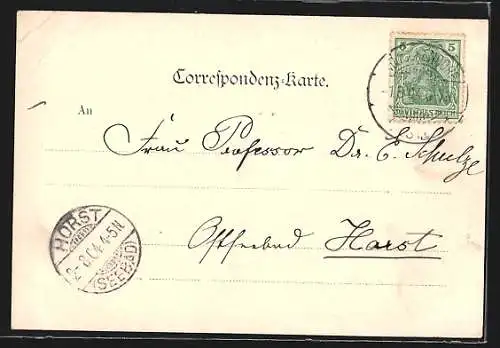 Correspondenz-Karte.
5 5
An
Frau Professor Dr. E. Schulze
Ostseebad Horst
HORST
2.8.04.4-5N
(SEEBAD)